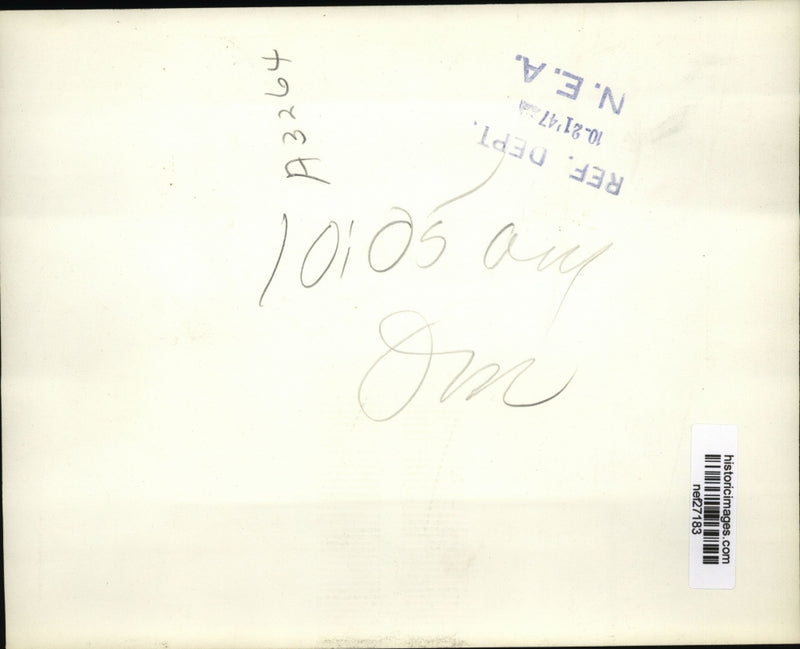 A3264
REF. DEPT.
10.21'47
N.E.A.
10:05 am
historicimages.com
nef27183